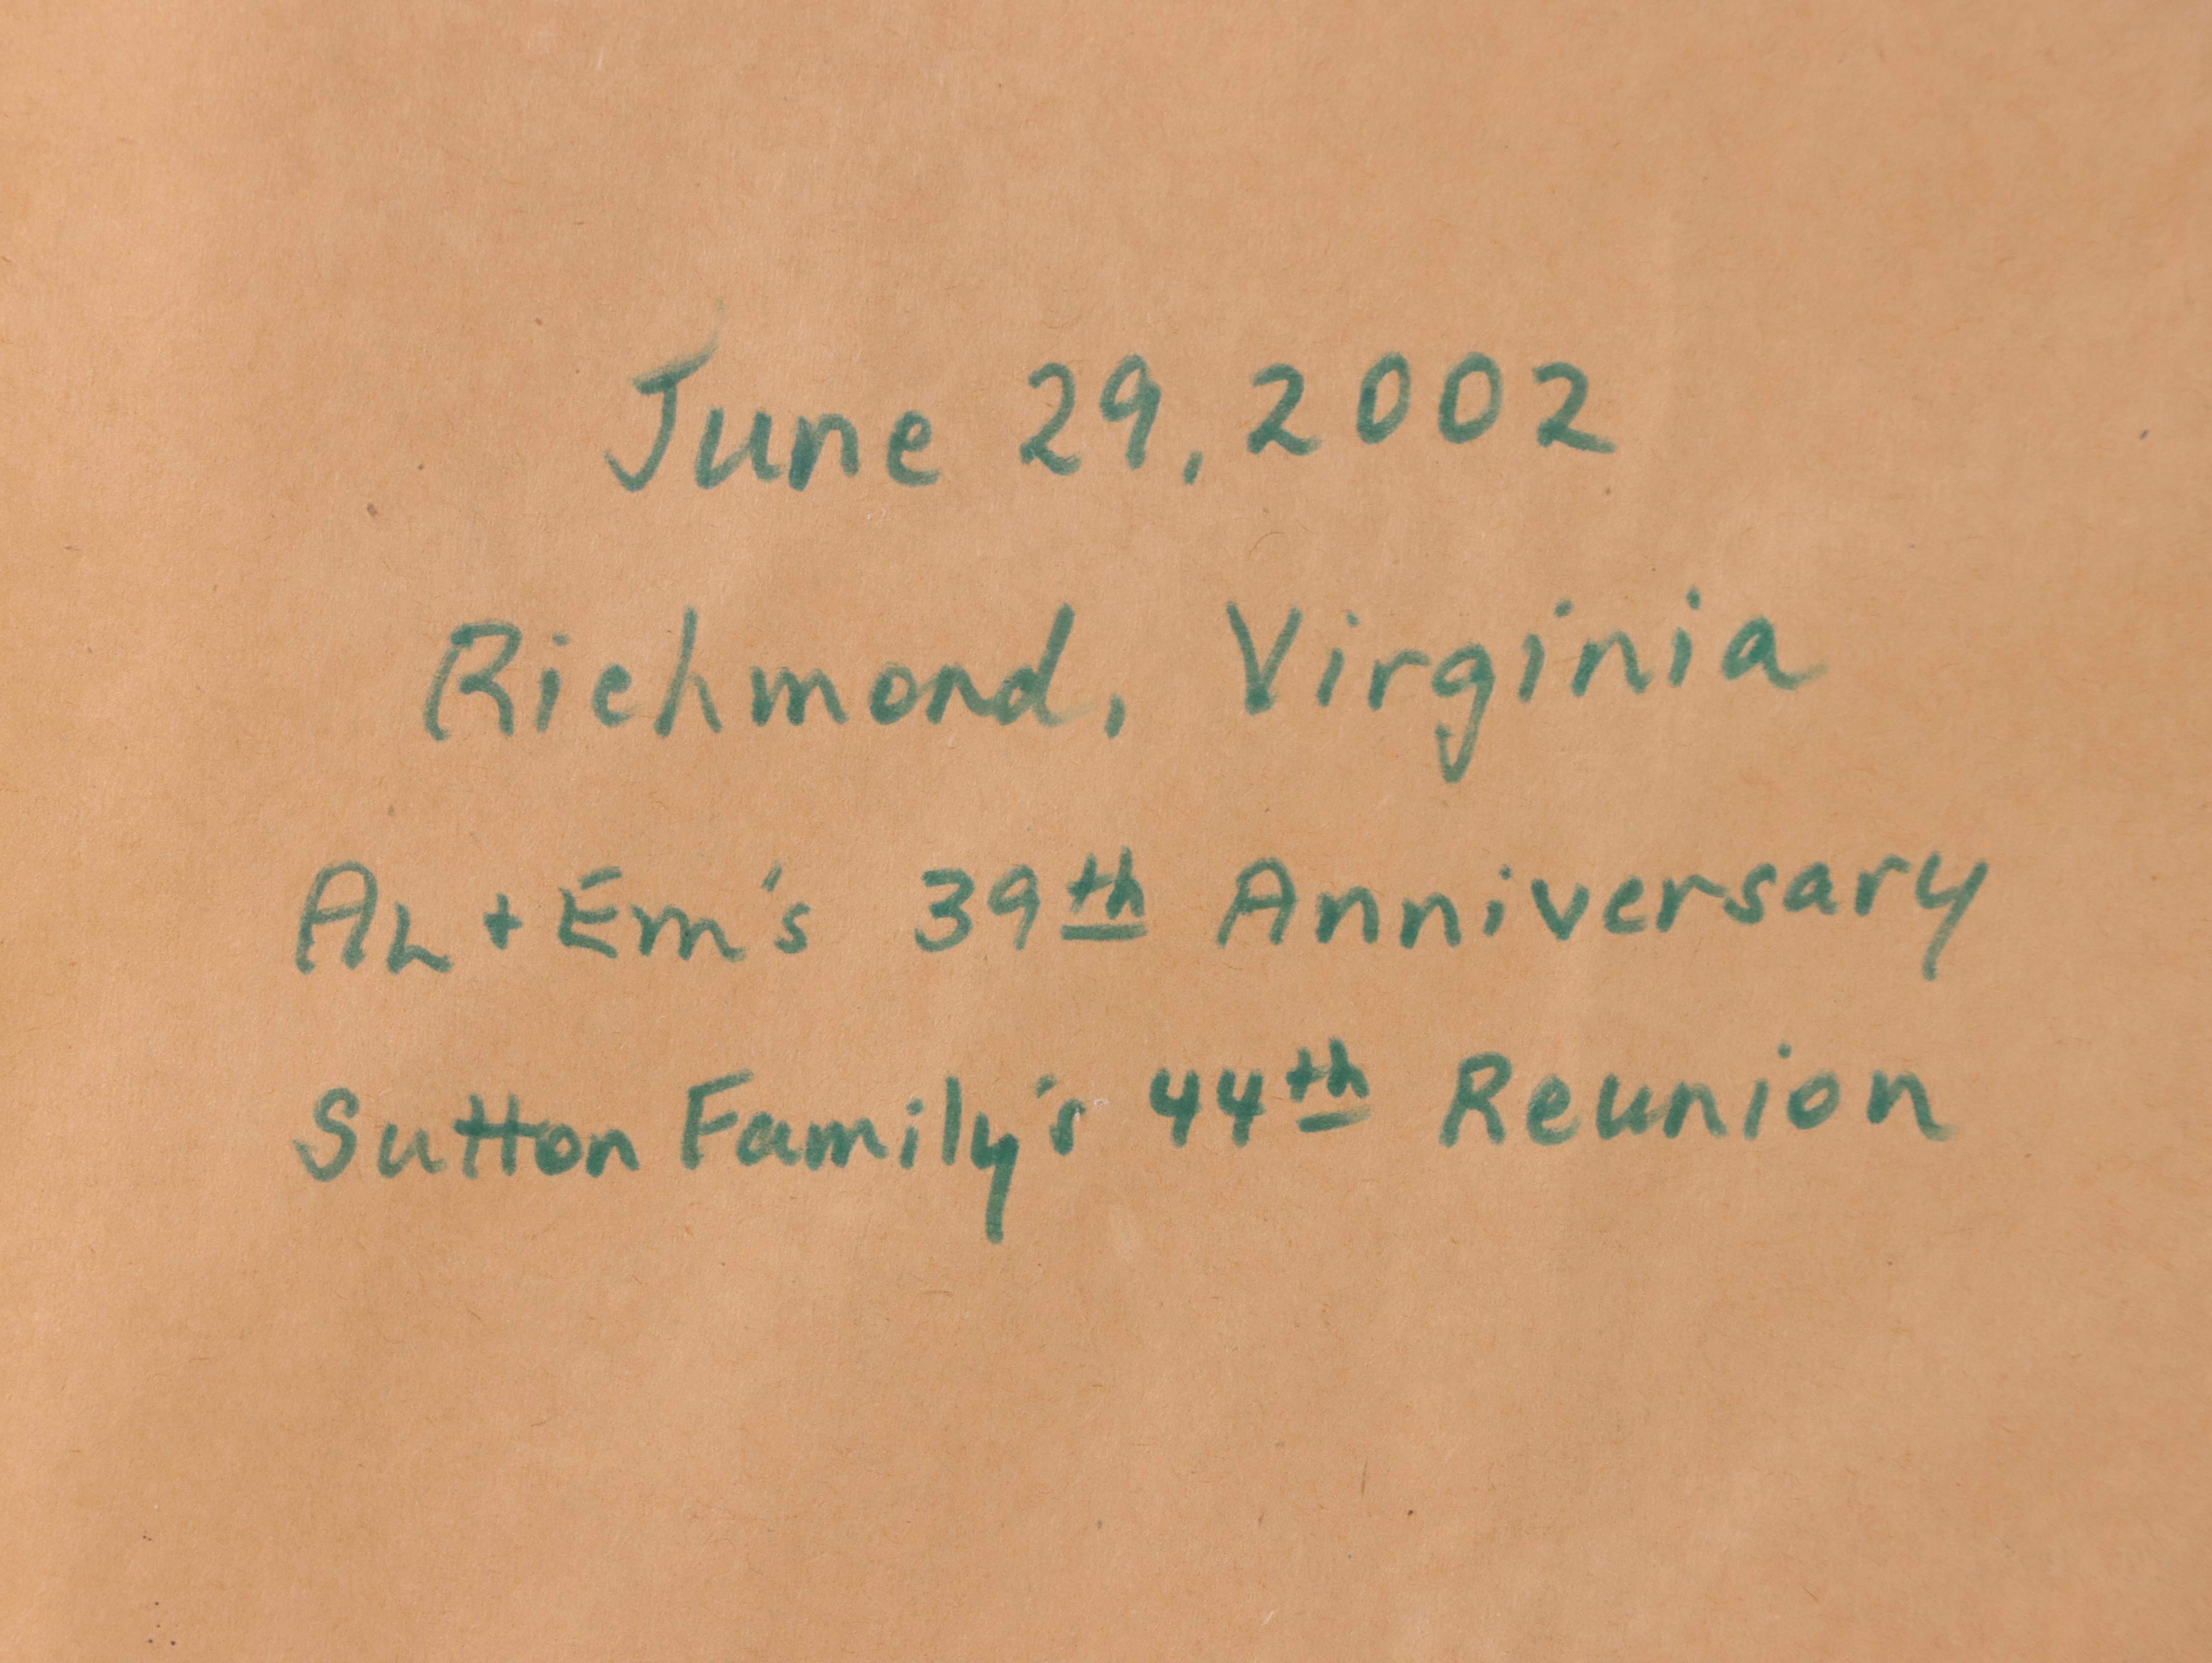 June 29, 2002
Richmond, Virginia
AL + Em's 39th Anniversary
Sutton Family's 44th Reunion